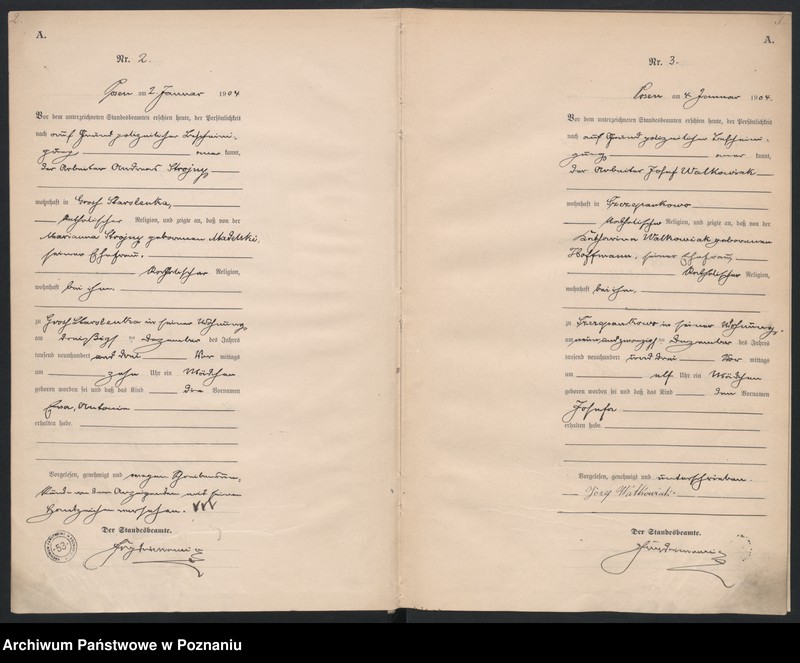 2.
A.
Nr. 2.
Posen am 2. Januar 1904
Vor dem unterzeichneten Standesbeamten erschien heute, der Persönlichkeit
nach auf Grund polizeilicher Bescheini-
gung kannt,
der Arbeiter Andreas Strojny
wohnhaft in Groß Starolenka,
katholischer Religion, und zeigte an, daß von der
Marianna Strojny geborenen Madelski,
seiner Ehefrau,
katholischer Religion,
wohnhaft bei ihm,
zu Groß Starolenka in seiner Wohnung
am dreißigsten Dezember des Jahres
tausend neunhundert und drei Vor mittags
um zehn Uhr ein Mädchen
geboren worden sei und daß das Kind die Vornamen
Eva, Antonia
erhalten habe.
Vorgelesen, genehmigt und wegen Schreibensun-
kunde von dem Anzeigenden mit seinem
Handzeichen versehen. XXX
Der Standesbeamte.
53
A.
Nr. 3.
Posen am 4. Januar 1904.
Vor dem unterzeichneten Standesbeamten erschien heute, der Persönlichkeit
nach auf Grund polizeilicher Bescheini-
gung kannt,
der Arbeiter Josef Walkowiak
wohnhaft in Szczepankowo
katholischer Religion, und zeigte an, daß von der
Katharina Walkowiak geborenen
Hoffmann, seiner Ehefrau,
katholischer Religion,
wohnhaft bei ihm,
zu Szczepankowo in seiner Wohnung
am neunundzwanzigsten Dezember des Jahres
tausend neunhundert und drei Vor mittags
um elf Uhr ein Mädchen
geboren worden sei und daß das Kind den Vornamen
Josefa
erhalten habe.
Vorgelesen, genehmigt und unterschrieben.
Józef Walkowiak.
Der Standesbeamte.
Archiwum Państwowe w Poznaniu